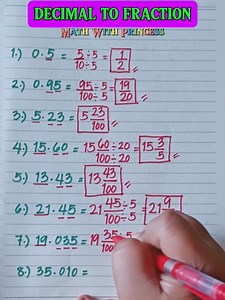 DECIMAL TO FRACTION
MATH WITH PRINCESS
1.) 0.5 = 5÷5/10÷5 = 1/2
2.) 0.95 = 95÷5/100÷5 = 19/20
3.) 5.23 = 5 23/100
4.) 15.60 = 15 60÷20/100÷20 = 15 3/5
5.) 13.43 = 13 43/100
6.) 21.45 = 21 45÷5/100÷5 = 21 9
7.) 19.035 = 19 35÷5/100
8.) 35.010 =